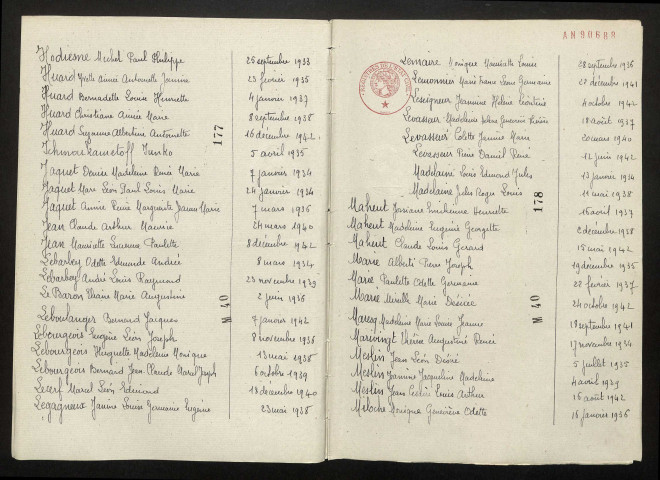 Hodiesne Michel Paul Philippe 25 septembre 1933
Huard Yvette Aimée Antoinette Jeannine 23 février 1935
Huard Bernadette Louise Henriette 4 janvier 1937
Huard Christiane Aimée Marie 8 septembre 1938
Huard Suzanne Albertine Antoinette 16 décembre 1942
5 avril 1935
Jaquet Denise Madeleine Renée Marie 7 janvier 1934
Jaquet Marc Léon Paul Louis Marie 24 janvier 1934
Jaquet Annie Renée Marguerite Jeanne Marie 7 mars 1936
Jean Claude Arthur Maurice 24 mars 1940
Jean Henriette Paulette 8 décembre 1942
Lebarbey Odette Edmonde André 8 mars 1934
Lebarbey André Louis Raymond 23 novembre 1939
Le Baron Eliane Marie Augustine 2 juin 1936
Leboulanger Bernard Jacques 7 janvier 1942
Lebourgeois Eugène Léon Joseph 8 novembre 1936
Lebourgeois Huguette Madeleine Monique 13 mai 1938
Lebourgeois Bernard Jean Claude Marcel Joseph 6 octobre 1939
Lecerf Marcel Léon Edmond 18 décembre 1940
Legagneux Janine Louise Germaine Eugénie 23 mai 1938
177
M 40
AN 90689
Lemaire Monique Henriette Louise 28 septembre 1936
Lemonnier Marie France Léone Germaine 27 décembre 1941
Lesigneur Jeannine Hélène Léontine 4 octobre 1942
Levasseur Madeleine 18 août 1937
Levasseur Colette Jeannine Marie 20 mars 1940
Levasseur Pierre Daniel René 12 juin 1942
Madelaine Louis Edmond Jules 13 janvier 1934
Madelaine Jules Roger Louis 11 mai 1938
Maheut Josiane Henriette 16 avril 1937
Maheut Madeleine Eugénie Georgette 2 décembre 1938
Maheut Claude Louis Gérard 15 mai 1942
Marie Albert Pierre Joseph 19 décembre 1935
Marie Paulette Odette Germaine 28 février 1937
Marie Mireille Marie Désirée 24 octobre 1942
Madeleine Marie Louise Jeanne 18 septembre 1941
Thérèse Augustine Renée 17 novembre 1934
Meslin Jean Léon Désiré 5 juillet 1935
Meslin Jeannine Jacqueline Madeleine 4 avril 1939
Meslin Jean Louis Arthur 16 août 1942
Meloche Monique Geneviève Odette 16 janvier 1936
178
M 40